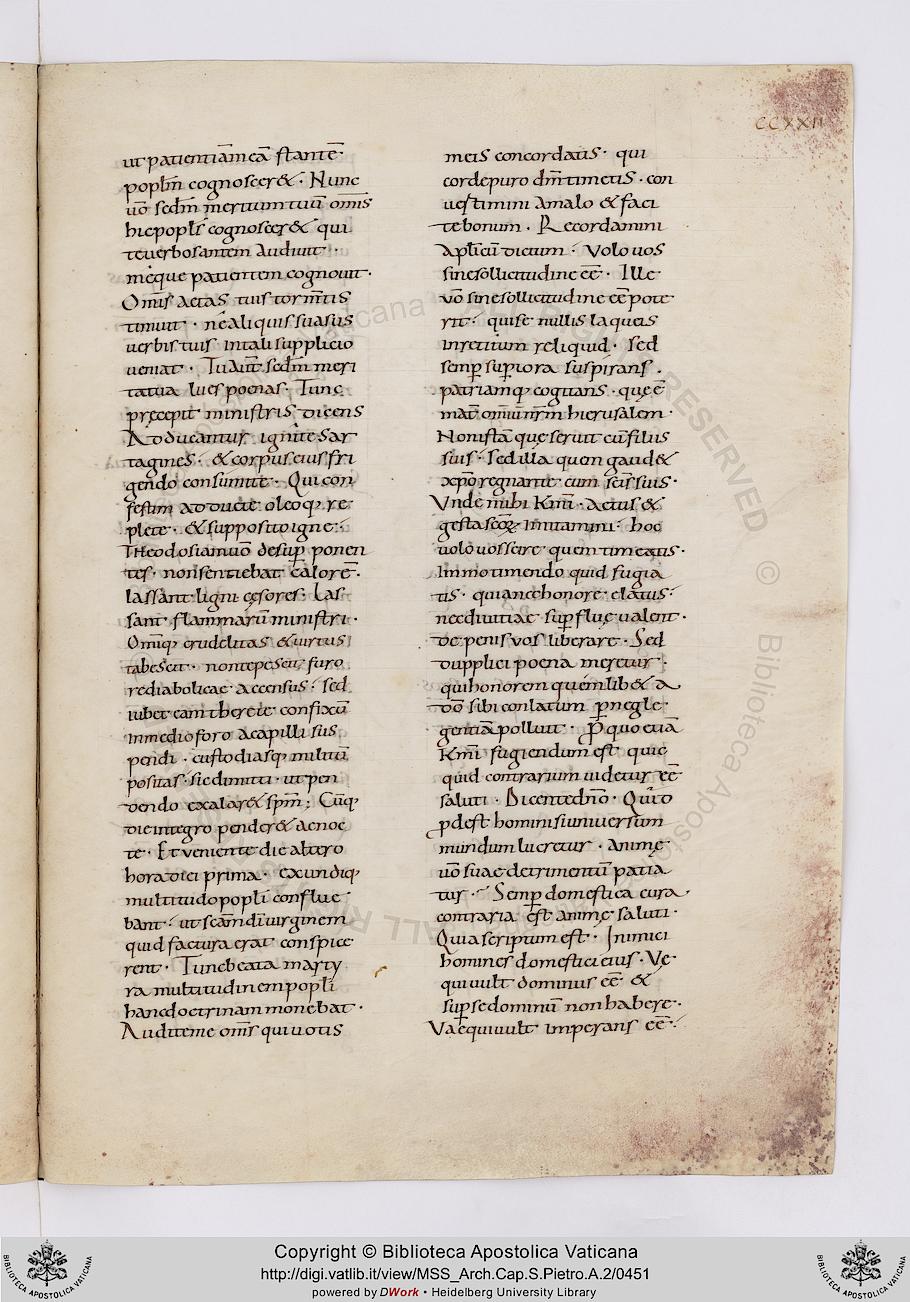 CCXXII
ut patientiā meā stantē
poplm̄ cognosceret · Nunc
uō secdm̄ meritum tuū om̄is
hic popls̄ cognosceret qui
te uerbosantem audiuit ·
meque patientem cognouit ·
Om̄is aetas tuis torm̄tis
timuit · ne aliquis suasus
uerbis tuis in tali supplicio
ueniat · Tu aut̄ secdm̄ meri
ta tua lues poenas · Tunc
pręcepit ministris dicens
Adducantur ignite sar
tagines · & corpus eius fri
gendo consumite · Qui con
festim adducte oleoq; re
plete · & supposito igne ·
Theodosiam uō desup ponen
tes · non sentiebat calorē ·
lassant ligni cęsores · las
sant flammarū ministri ·
Omniq; crudelitas & uirtus
tabescit · non tepescit furo
re diabolicae accensus · sed
iubet eam therete confixū
in medio foro a capilli sus
pendi · custodiasq; militū
positas · sic dimitti · ut pen
dendo exalaret spm̄ ; Cūq;
die integro penderet ac noc
te · Et ueniente die altero
hora diei prima · ex undiq;
multitudo popli conflue
bant · ut scām dī uirginem
quid factura erat conspice
rent · Tunc beata marty
ra multitudinem popli
hanc doctrinam monebat ·
Audite me om̄s qui uotis
meis concordatis · qui
corde puro dm̄ timetis · con
uestimini a malo & faci
te bonum · Recordamini
aplicū dictum · Volo uos
sine sollicitudine eē · Ille
uō sine sollicitudine eē pote
rit · qui se nullis laqueis
inretitum reliquid · sed
semp superiora suspirans ·
patriamq; cogitans · quę ē
mat̄ omniū nrm̄ hierusalem ·
Non istā quę seruit cū filiis
suis · sed illa quem gaudet
xp̄o regnante cum scis̄ suis ·
Vnde mihi Km̄i · actus &
gesta scōꝝ imitamini · hoc
uolo uos scere quem timeatis ·
Immo timendo quid fugia
tis · quia nec honore elatus ·
nec diuitiae superflue ualent ·
de penis uos liberare · Sed
dupplici poena meretur ·
qui honorem quemlibet a
dō sibi conlatum p negle
gentiā polluit · P quo etiā
Km̄i fugiendum est quic
quid contrarium uidetur eē
saluti · Dicente dn̄o · Quid
pdest homini si uniuersum
mundum lucretur · animę
uō suae detrimentū patia
tur · Semp domestica cura
contraria est animę saluti ·
Quia scriptum est · Inimici
homines domestici eius · Ve
qui uult dominus eē &
sup se dominū non habere ·
Vae qui uult imperans eē ·
Copyright © Biblioteca Apostolica Vaticana
http://digi.vatlib.it/view/MSS_Arch.Cap.S.Pietro.A.2/0451
powered by DWork • Heidelberg University Library